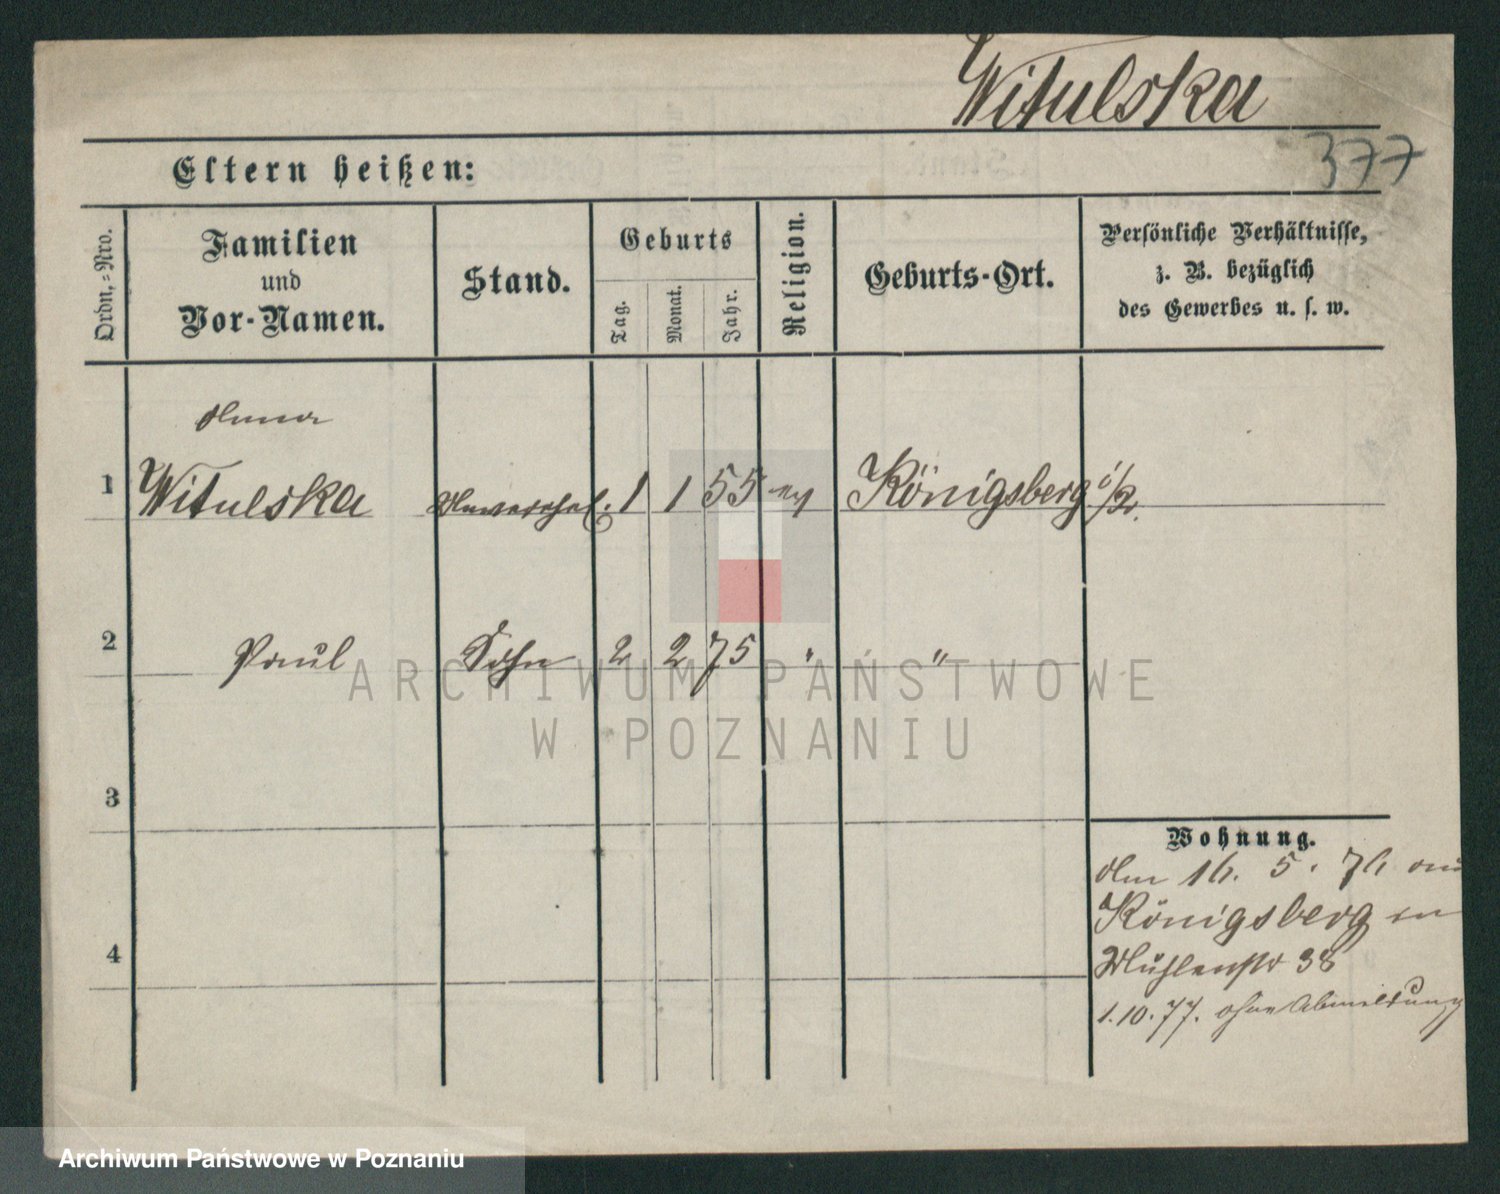 Witulska
377
Eltern heißen:
Ordn.-Nro.
Familien
und
Vor-Namen.
Stand.
Geburts
Tag.
Monat.
Jahr.
Religion.
Geburts-Ort.
Persönliche Verhältnisse,
z. B. bezüglich
des Gewerbes u. s. w.
Anna
1 Witulska Unverehel. 1 1 55 ev Königsberg
2 Paul Sohn 2 2 75 " "
3
4
Wohnung.
Am 16. 5. 76 aus
Königsberg in
Mühlenstr 38
1.10.77. ohne Abmeldung
ARCHIWUM PAŃSTWOWE
W POZNANIU
Archiwum Państwowe w Poznaniu